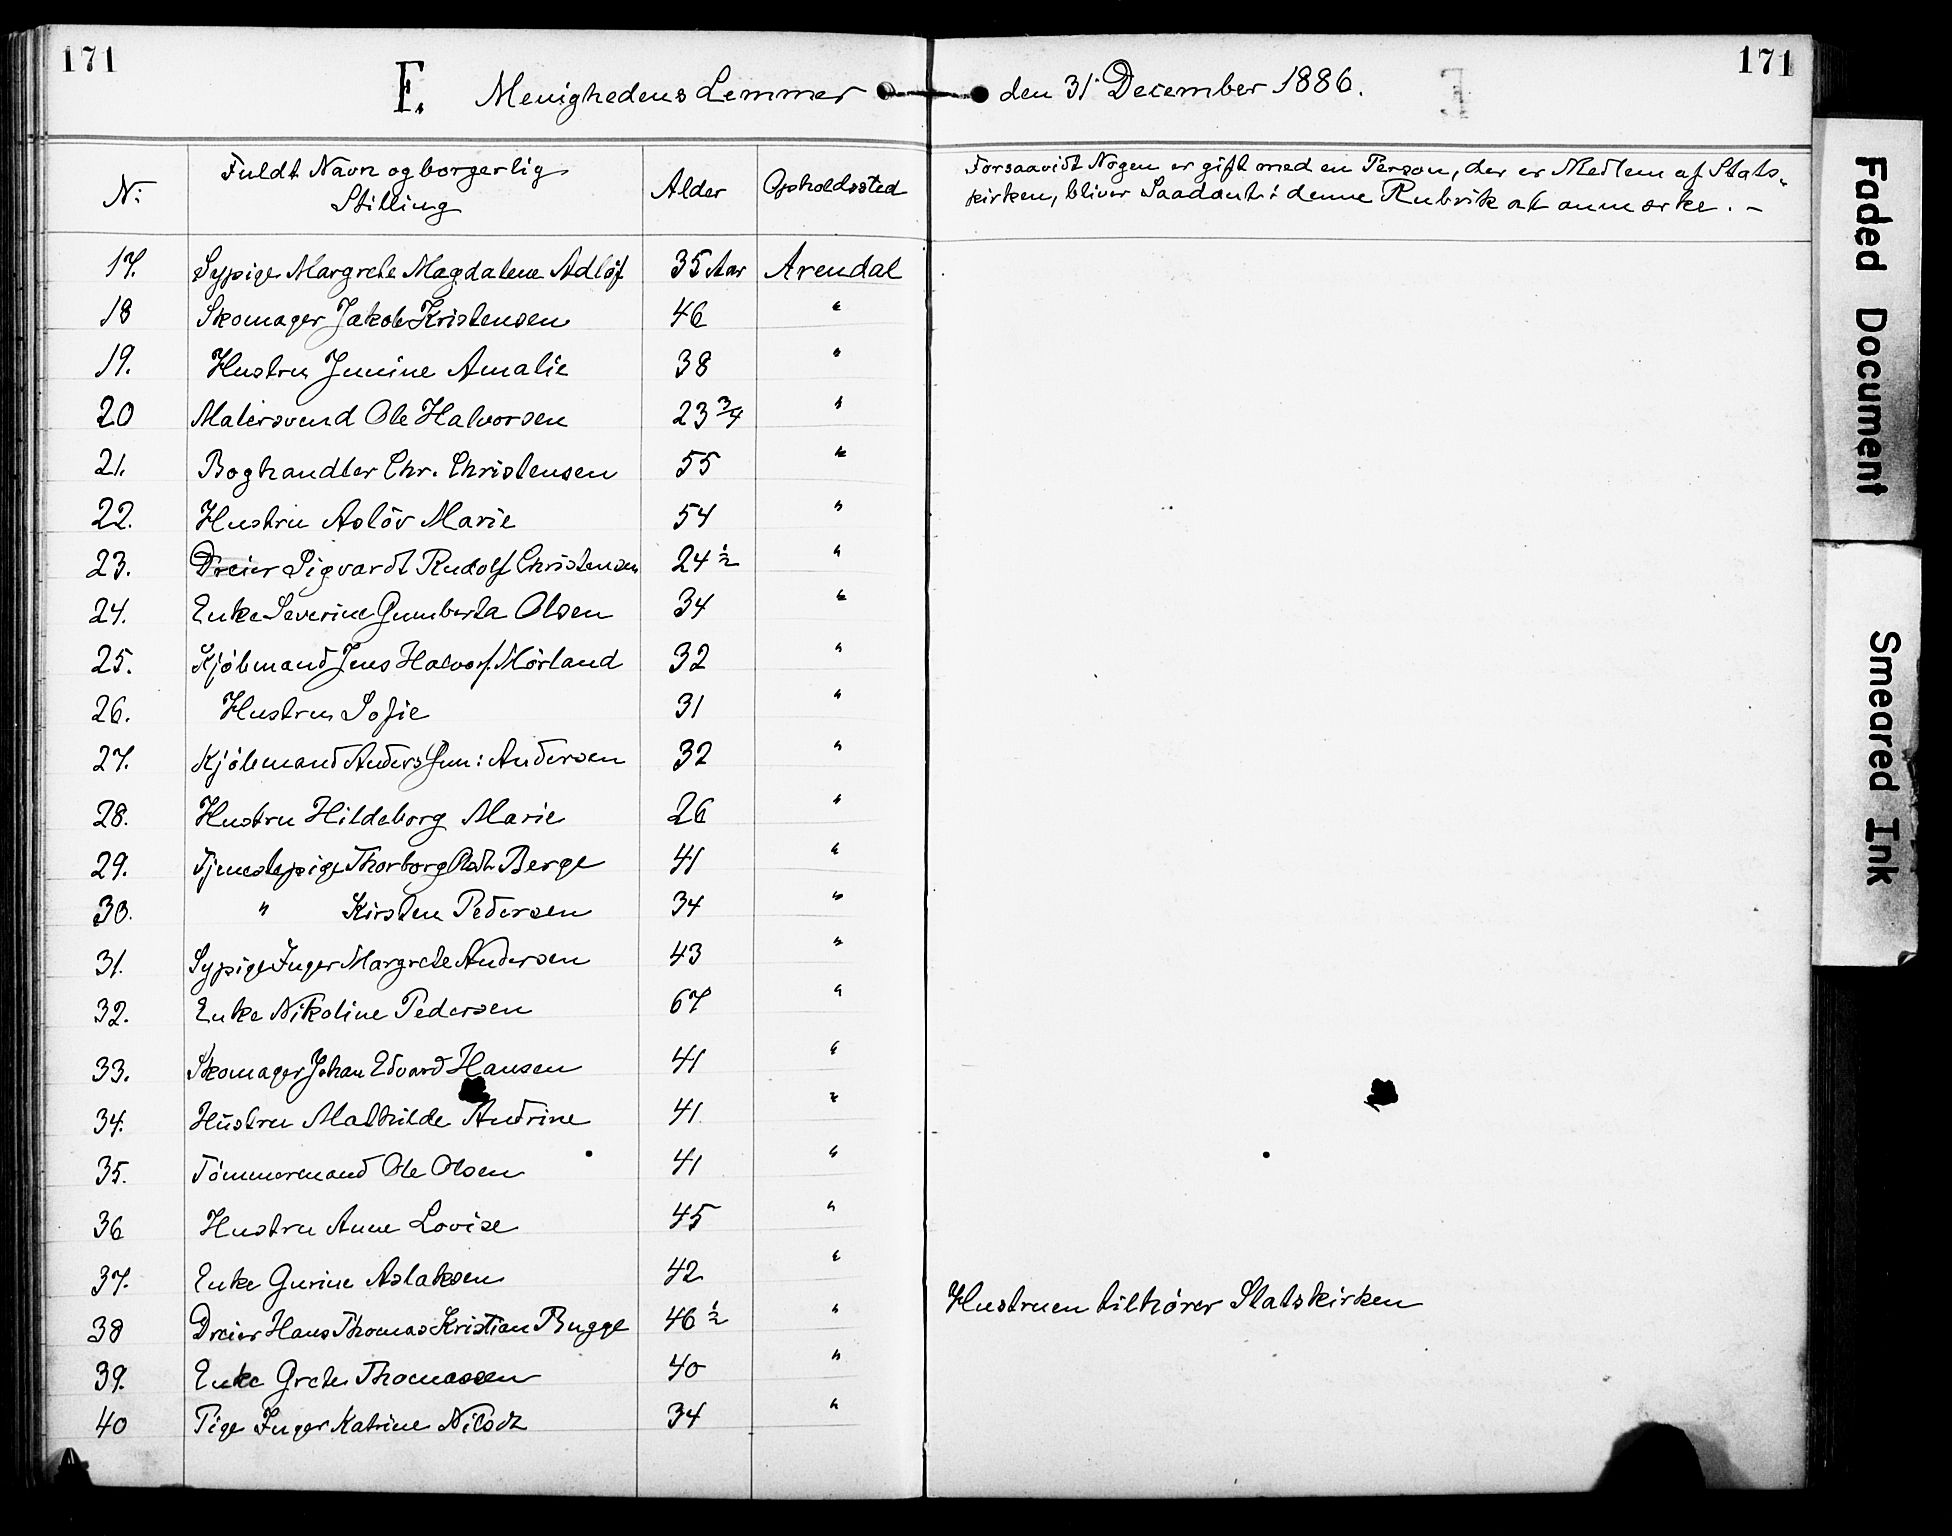 171
171
F. Menighedens Lemmer den 31. December 1886.
N: Fuldt Navn og borgerlig Stilling Alder Opholdssted Forsaavidt Nogen er gift med en Person, der er Medlem af Stats-
kirken, bliver Saadant i denne Rubrik at anmærke. -
17. Sypige Margrete Magdalene Adlöf 35 Aar Arendal
18 Skomager Jakob Kristensen 46 "
19. Hustru Jensine Amalie 38 "
20 Malersvend Ole Halvorsen 23 3/4 "
21. Boghandler Chr. Christensen 55 "
22. Hustru Aslöv Marie 54 "
23. Dreier Sigvardt Rudolf Christensen 24 1/2 "
24. Enke Severine Gumberta Olsen 34 "
25. Kjöbmand Jens Halvors. Mörland 32 "
26. Hustru Sofie 31 "
27. Kjöbmand Anders Gun: Andersen 32 "
28. Hustru Hildeborg Marie 26 "
29. Tjenestepige Thorborg Berge 41 "
30. " Kirsten Pedersen 34 "
31. Sypige Inger Margrete Andersen 43 "
32. Enke Nikoline Pedersen 67 "
33. Skomager Johan Edvard Hansen 41 "
34. Hustru Mathilde Andrine 41 "
35. Tömmermand Ole Olsen 41 "
36 Hustru Anne Lovise 45 "
37. Enke Gurine Aslaksen 42 "
38 Dreier Hans Thomas Kristian Bugge 46 1/2 " Hustruen tilhörer Statskirken
39. Enke Grete Thomassen 40 "
40 Pige Inger Katrine Nilsdt 34 "
Faded Document
Smeared Ink